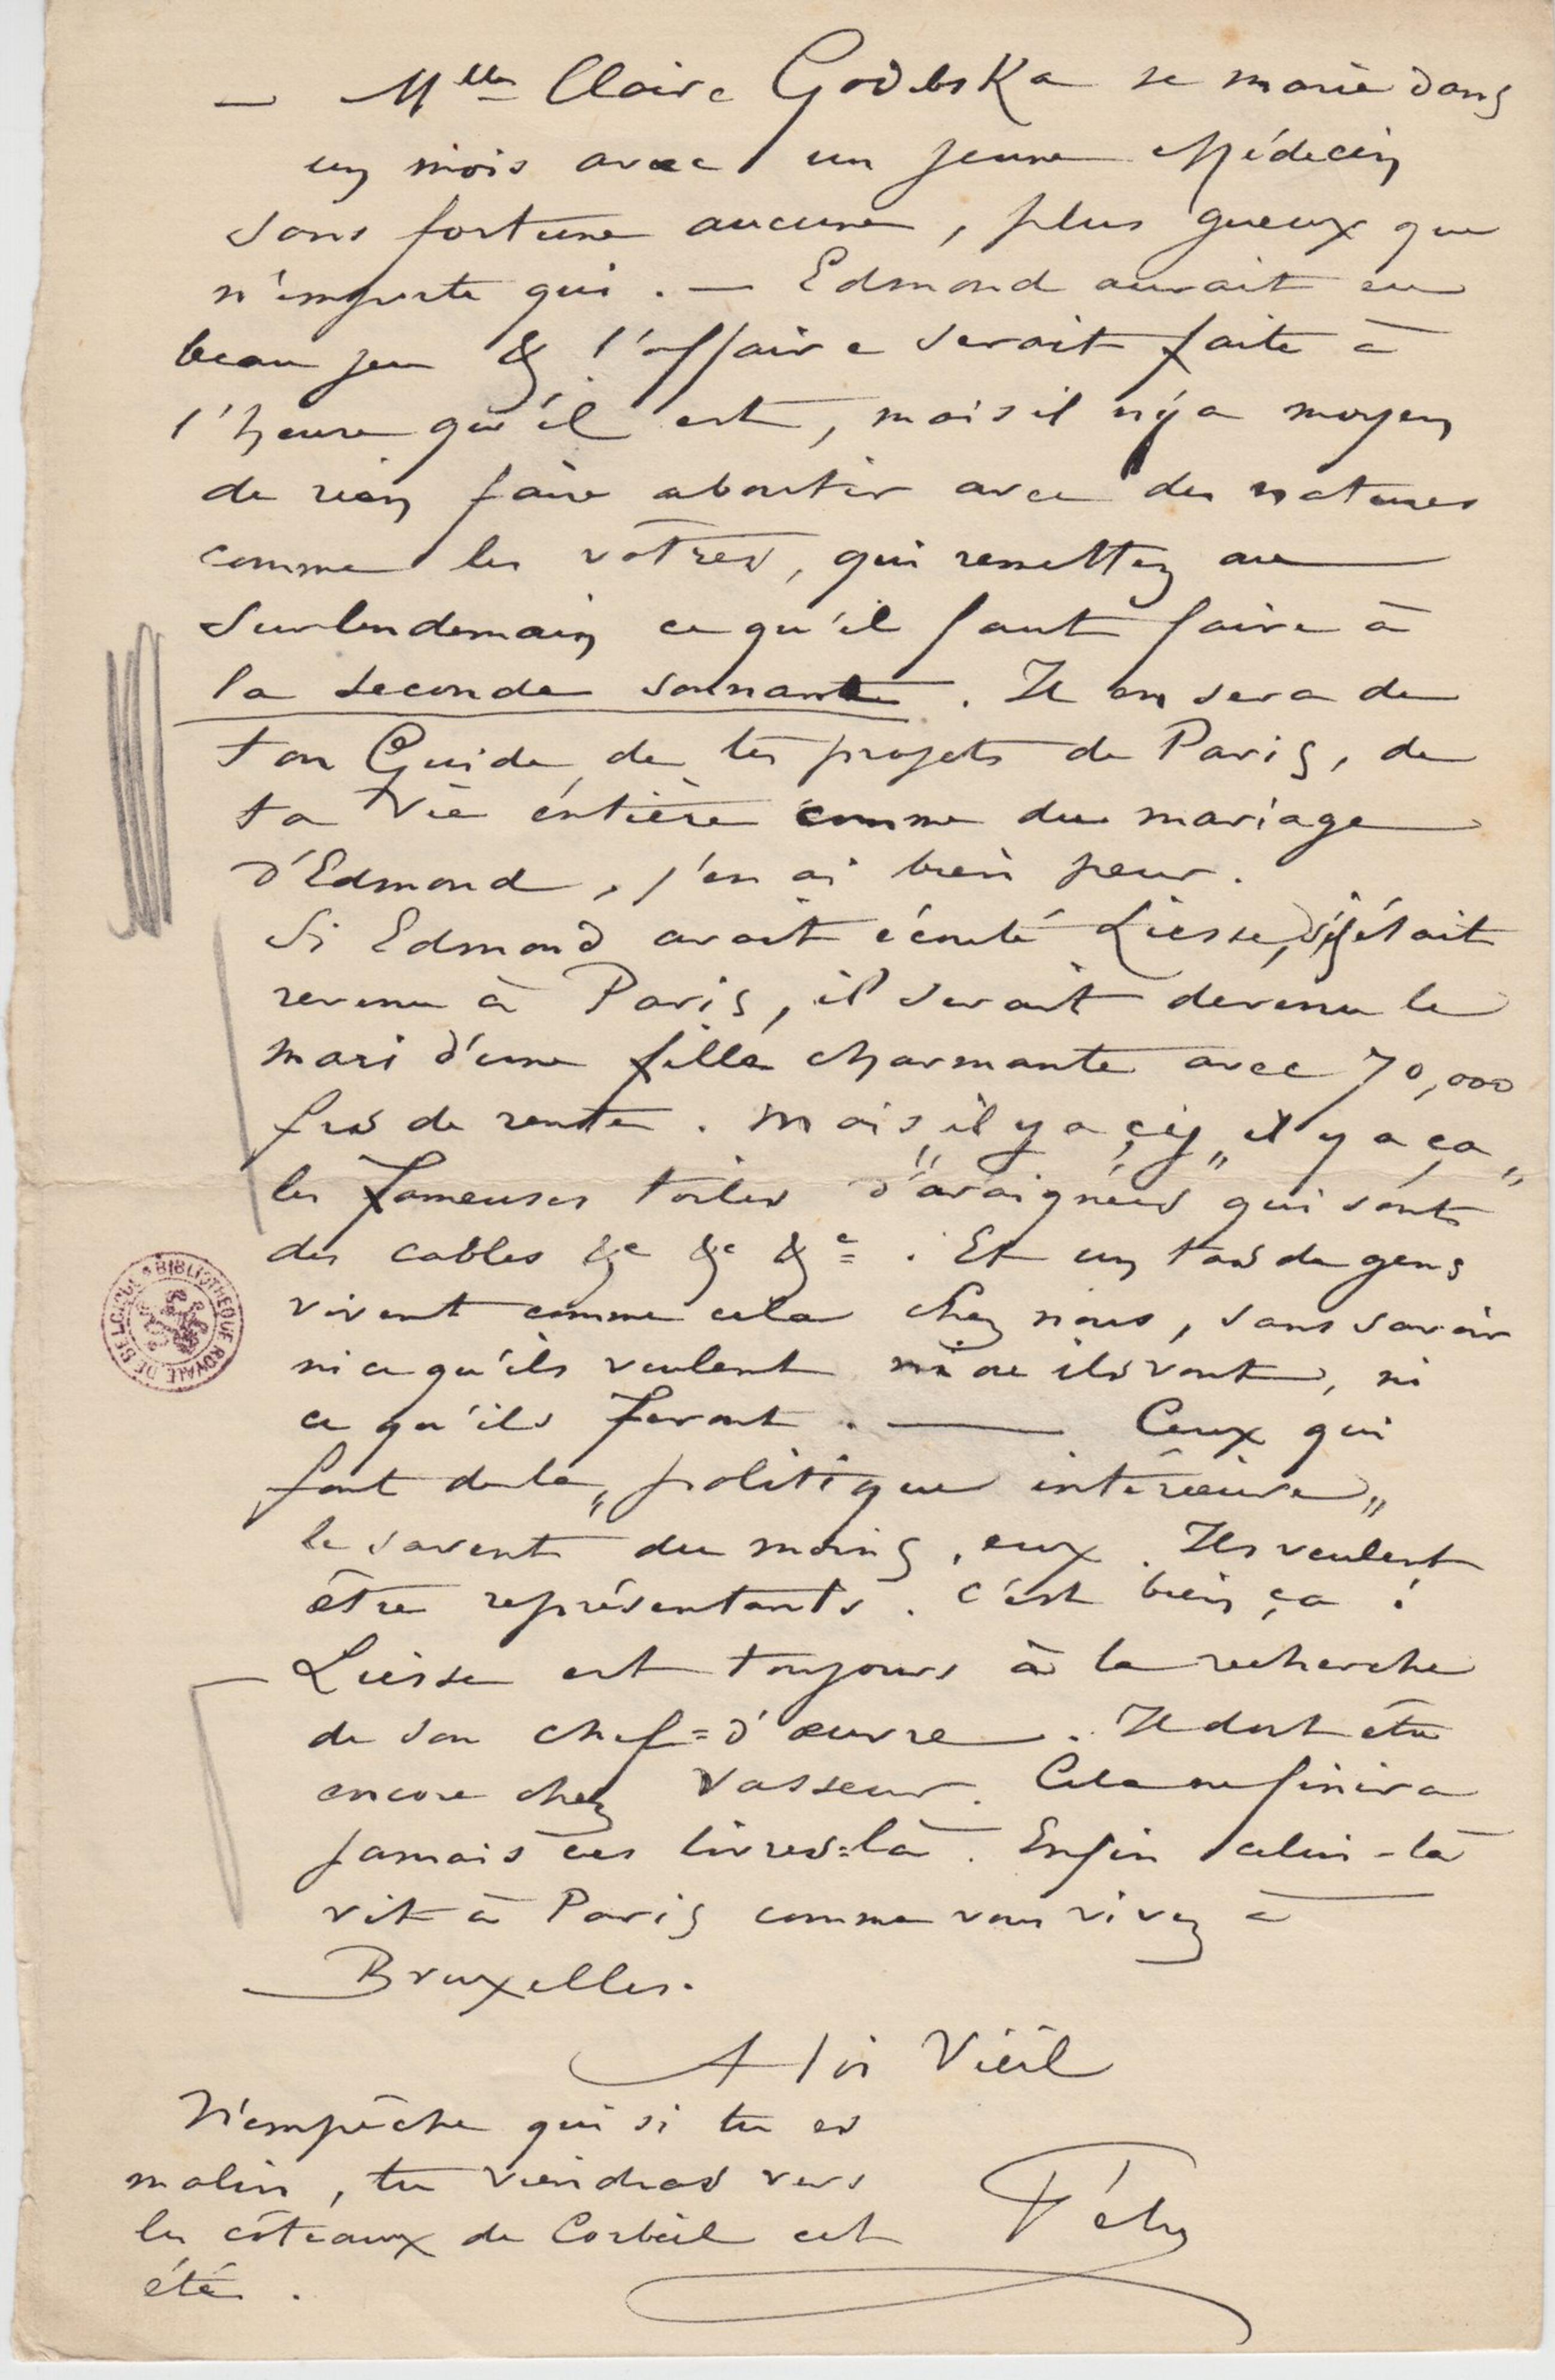 — Mlle Claire Godebska se marie dans
un mois avec un jeune Médecin
sans fortune aucune, plus gueux que
n'importe qui. — Edmond aurait eu
beau jeu & l'affaire serait faite à
l'heure qu'il est, mais il n'y a moyen
de rien faire aboutir avec des natures
comme les vôtres, qui remettez au
surlendemain ce qu'il faut faire à
la seconde sonnante. Il en sera de
ton Guide, de tes projets de Paris, de
ta vie éntière comme du mariage
d'Edmond, j'en ai bien peur.
Si Edmond avait écouté Liesse, s'il était
revenu à Paris, il serait devenu le
mari d'une fille charmante avec 70,000
frs de rente. Mais „il y a çi„ „il y a ça„
les fameuses toiles d'araignées qui sont
des cables &c &c &c. Et un tas de gens
vivent comme cela chez nous, sans savoir
ni ce qu'ils veulent ni ou ils vont, ni
ce qu'ils feront. — Ceux qui
font de la „politique intérieure„
le savent du moins, eux. Ils veulent
être représentants. C'est bien ça!
— Liesse est toujours à la recherche
de son chef=d'œuvre. Il doit être
encore chez Vasseur. Cela ne finira
jamais ces livres=là. Enfin celui-là
vit à Paris comme vous vivez à
Bruxelles.
A toi Vieil
N'empêche qui si tu es
malin, tu viendras vers
les côteaux de Corbeil cet
été.
Fély
BIBLIOTHEQUE ROYALE DE BELGIQUE